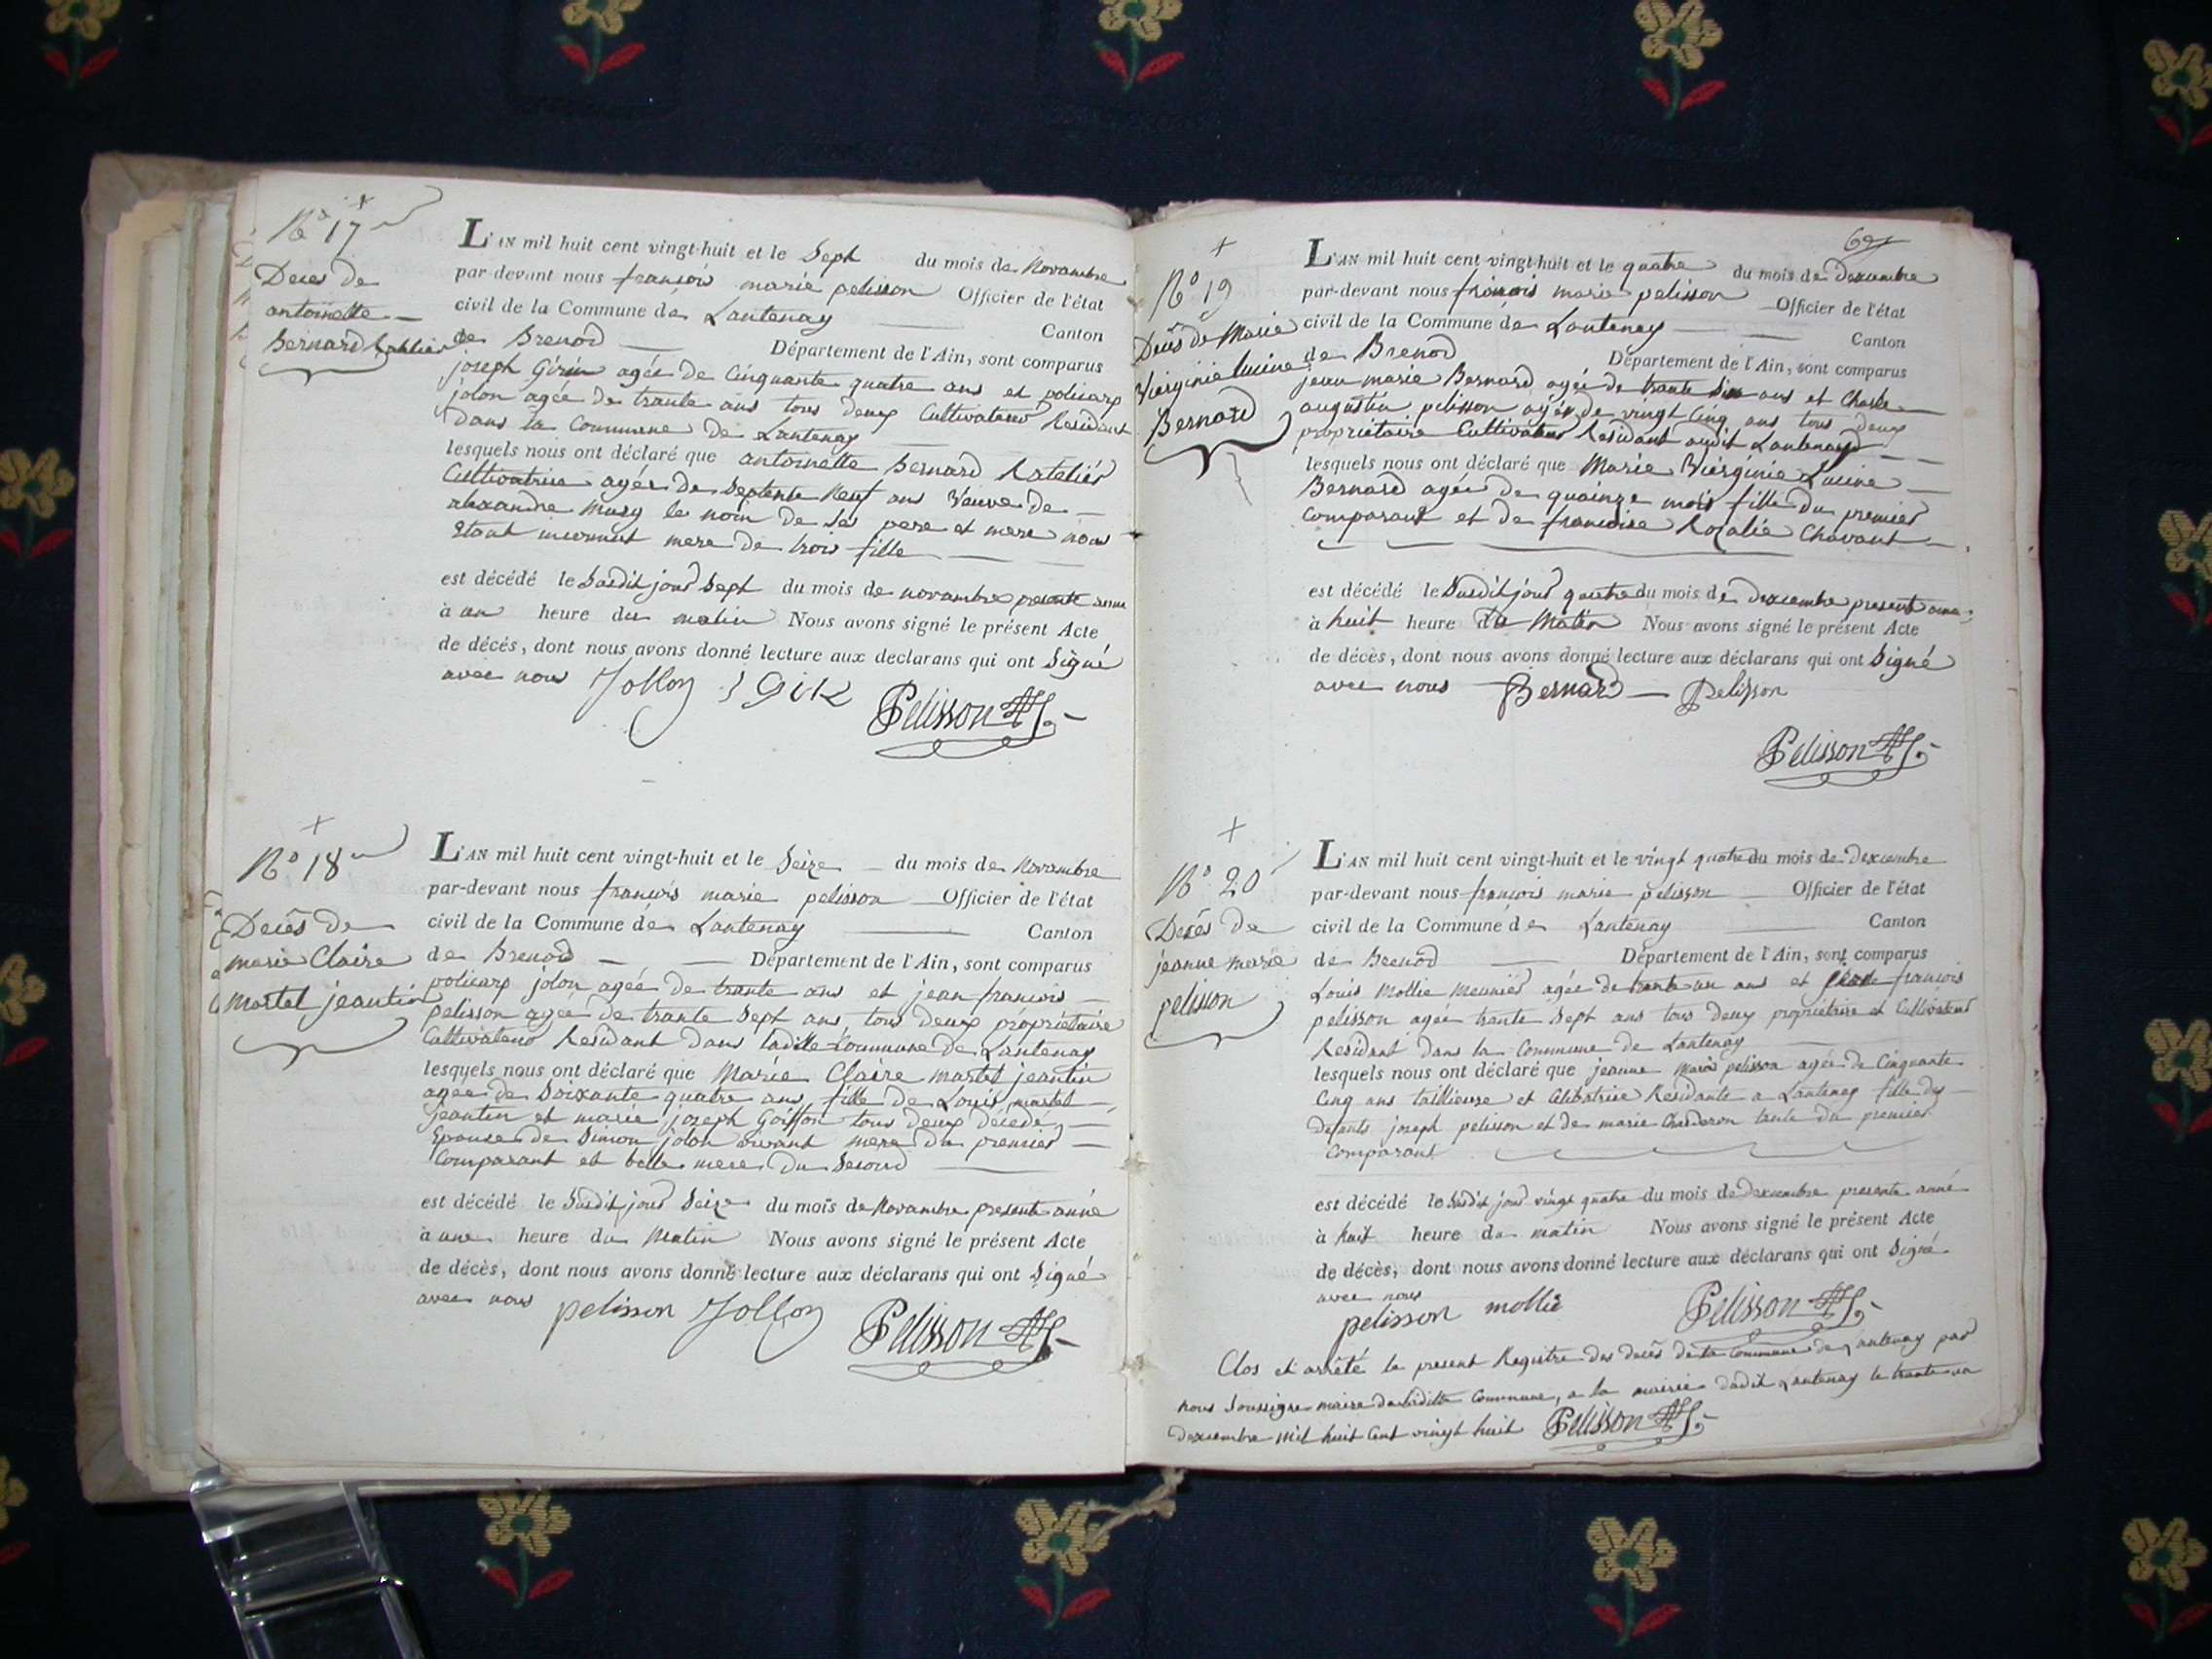 No 17
Deces de
antoinette
Bernard Ratelier
L'AN mil huit cent vingt-huit et le Sept du mois de Novambre
par-devant nous françois marie pelisson Officier de l'état
civil de la Commune de Lantenay Canton
de Brenod Département de l'Ain, sont comparus
joseph Girin agée de Cinquante quatre ans et policarp
jolon agée de trante ans tous deux Cultivateur Residant
dans la Commune de Lantenay
lesquels nous ont déclaré que antoinette Bernard Rateliér
Cultivatrice agée de Septente Neuf ans Veuve de
alexandre Mury le nom de Ses pere et mere nous
Etant inconnut mere de trois fille
est décédé le Susdit jour Sept du mois de novambre presente anné
à un heure du matin Nous avons signé le présent Acte
de décès, dont nous avons donné lecture aux declarans qui ont Signé
avec nous Jollon Pelisson
No 18
Decès de
marie Claire
martel jeantin
L'AN mil huit cent vingt-huit et le Seize du mois de Novambre
par-devant nous françois marie pelisson Officier de l'état
civil de la Commune de Lantenay Canton
de Brenod Département de l'Ain, sont comparus
policarp jolon agée de trante ans et jean françois
pelisson agée de trante Sept ans tous deux propriétaire
Cultivateur Residant dans ladite Commune de Lantenay
lesquels nous ont déclaré que Marie Claire martel jeantin
agée de Soixante quatre ans, fille de Louis martel
jeantin et marie joseph Goiffon tous deux décedé,
Epouse de Simon jolon vivant mere du premier
Comparant et belle mere du Second
est décédé le Susdit jour Seize du mois de Novambre presente anné
à une heure du Matin Nous avons signé le présent Acte
de décès, dont nous avons donné lecture aux déclarans qui ont Signé
avec nous pelisson Jollon Pelisson
No 19
Décès de Marie
Viergínie lucine
Bernard
L'AN mil huit cent vingt-huit et le quatre du mois de Dexcembre
par-devant nous françois marie pelisson Officier de l'état
civil de la Commune de Lantenay Canton
de Brenod Département de l'Ain, sont comparus
jean marie Bernard agée de trante Six ans et Charle
augustin pelisson agée de vingt Cinq ans tous deux
propriétaire Cultivateur Residant audit Lantenay
lesquels nous ont déclaré que Marie Viérginie Lucine
Bernard agée de quainze mois fille du premier
Comparant et de francoise Rozalie Chavant
est décédé le Susdit jour quatre du mois de Dexcembre present anné
à huit heure du Matin Nous avons signé le présent Acte
de décès, dont nous avons donné lecture aux déclarans qui ont Signé
avec nous Bernard Pelisson
Pelisson
No 20
Décès de
jeanne marie
pelisson
L'AN mil huit cent vingt-huit et le vingt quatre du mois de Dexcembre
par-devant nous françois marie pelisson Officier de l'état
civil de la Commune de Lantenay Canton
de Brenod Département de l'Ain, sont comparus
Louis Mollie Meuniér agée de trante un ans et françois
pelisson agée trante Sept ans tous deux propriétaire et Cultivateur
Residant dans la Commune de Lantenay
lesquels nous ont déclaré que jeanne Marie pelisson agée de Cinquante
Cinq ans taillieuse et Celibatrise Residante a Lantenay fille des
defunts joseph pelisson et de marie Chalderon tante du premier
Comparant
est décédé le Susdit jour vingt quatre du mois de Dexcembre presente anné
à huit heure du matin Nous avons signé le présent Acte
de décès, dont nous avons donné lecture aux déclarans qui ont Signé
avec nous
pelisson mollie Pelisson
Clos et arrêté le present Registre des decès de la Commune de Lantenay par
nous Soussigne maire de laditte Commune, a la mairie dudit Lantenay le trante un
dexcembre mil huit Cent vingt huit Pelisson